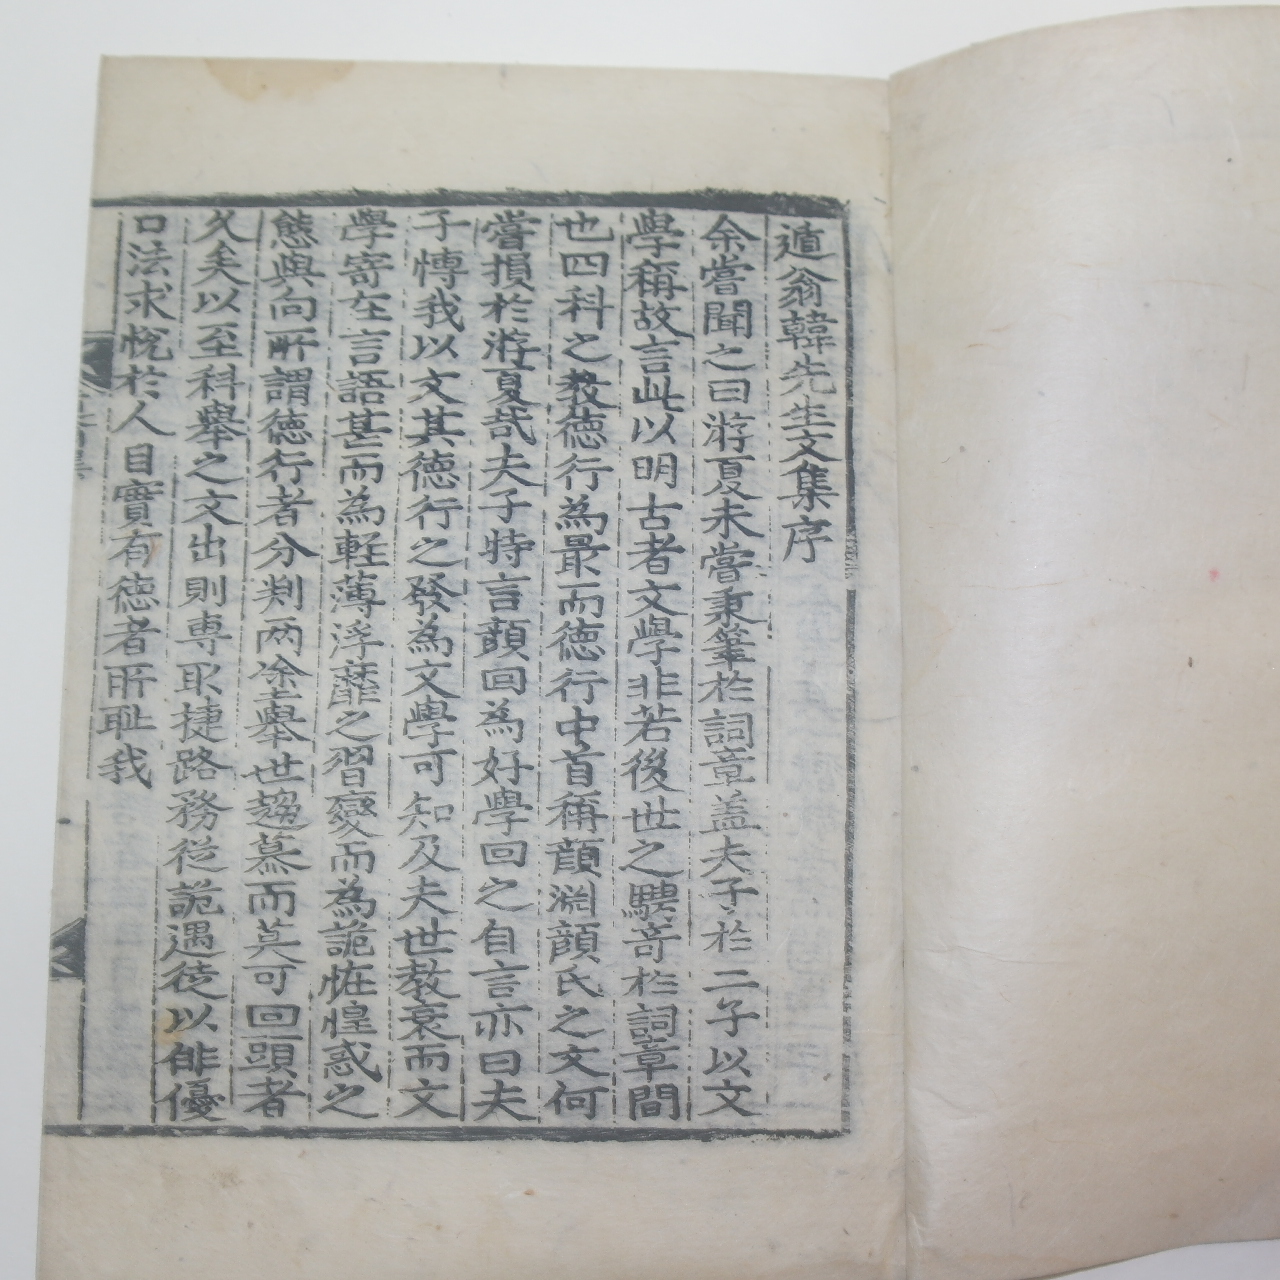 遁翁韓先生文集序
余嘗聞之曰游夏未嘗秉筆於詞章盖夫子於二子以文
學稱故言此以明古者文學非若後世之騁奇於詞章間
也四科之教德行為最而德行中首稱顔淵顔氏之文何
嘗損於游夏哉夫子特言顔回為好學回之自言亦曰夫
子愽我以文其德行之發為文學可知及夫世教衰而文
學寄在言語甚而為輕薄浮靡之習變而為詭恠惶惑之
態與向所謂德行者分判兩塗擧世趨慕而莫可回頭者
久矣以至科擧之文出則專取捷路務從詭遇徒以俳優
口法求悅於人目實有德者所耻我